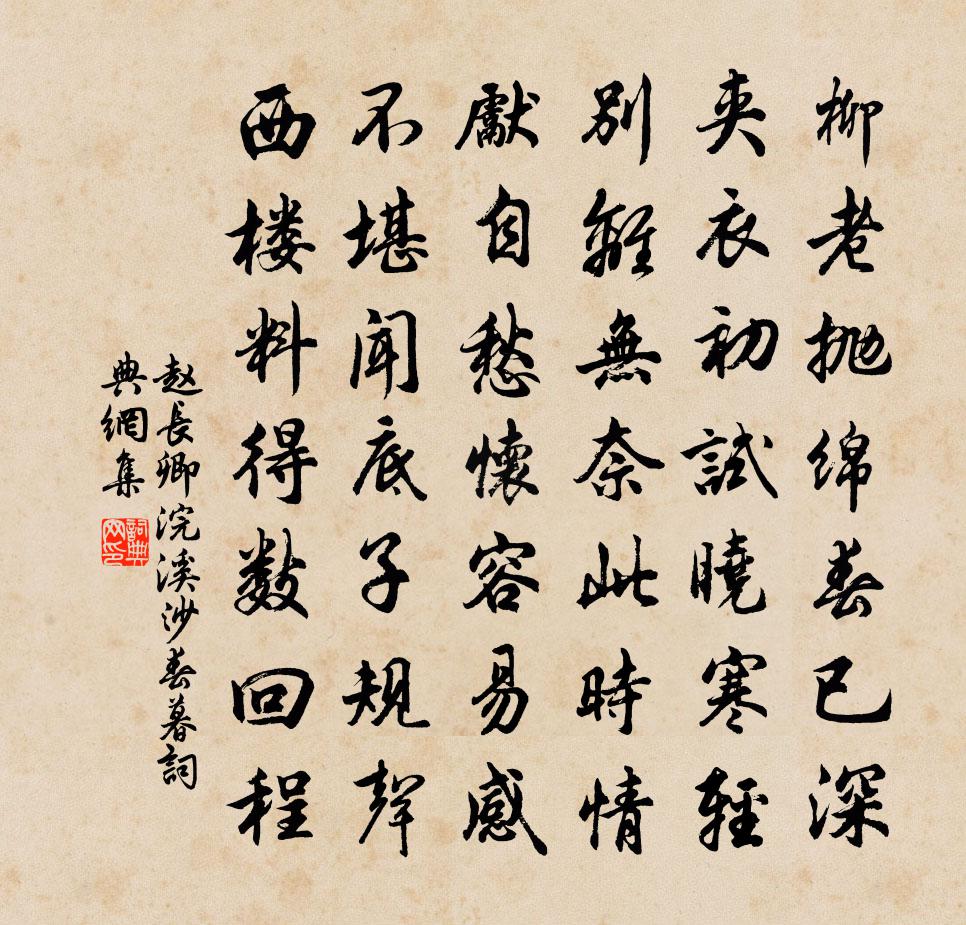 柳老抛绵春已深
夹衣初試曉寒輕
别離無奈此時情
獻自愁懷容易感
不堪聞底子規聲
西楼料得數回程
赵長卿浣溪沙春暮詞
典網集
詞典网印